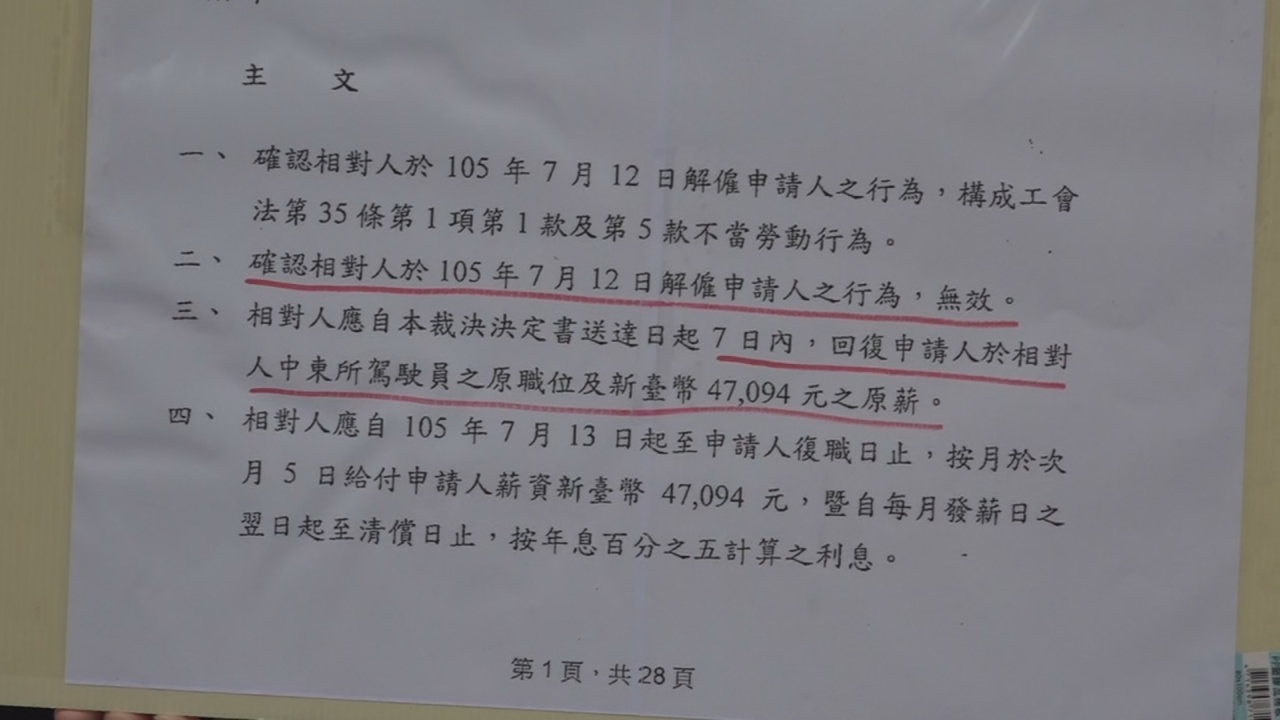 主 文
一、確認相對人於 105 年 7 月 12 日解僱申請人之行為，構成工會
法第 35 條第 1 項第 1 款及第 5 款不當勞動行為。
二、確認相對人於 105 年 7 月 12 日解僱申請人之行為，無效。
三、相對人應自本裁決決定書送達日起 7 日內，回復申請人於相對
人中東所駕駛員之原職位及新臺幣 47,094 元之原薪。
四、相對人應自 105 年 7 月 13 日起至申請人復職日止，按月於次
月 5 日給付申請人薪資新臺幣 47,094 元，暨自每月發薪日之
翌日起至清償日止，按年息百分之五計算之利息。
第 1 頁，共 28 頁